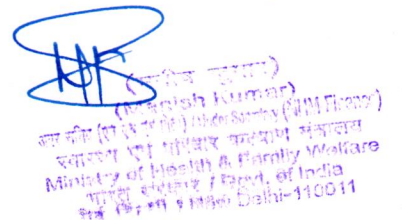 कुमार)
(Manish Kumar)
Under Secretary (NHM Finance)
स्वास्थ्य एवं परिवार कल्याण मंत्रालय
Ministry of Health & Family Welfare
भारत सरकार / Govt. of India
नई दिल्ली / New Delhi-110011